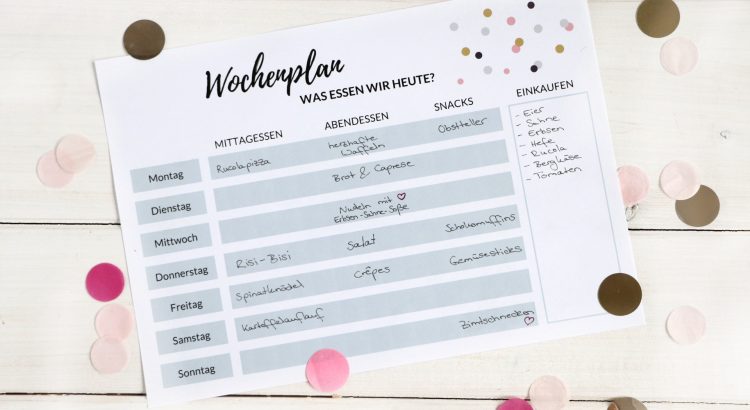 Wochenplan
WAS ESSEN WIR HEUTE?
MITTAGESSEN ABENDESSEN SNACKS
EINKAUFEN
Montag Rucolapizza herzhafte Waffeln Obstteller
Dienstag Brot & Caprese
Mittwoch Nudeln mit Erbsen-Sahne-Soße
Donnerstag Risi-Bisi Salat Schokomuffins
Freitag Spinatknödel Crêpes Gemüsesticks
Samstag Kartoffelauflauf
Sonntag Zimtschnecken
- Eier
- Sahne
- Erbsen
- Hefe
- Rucola
- Bergkäse
- Tomaten